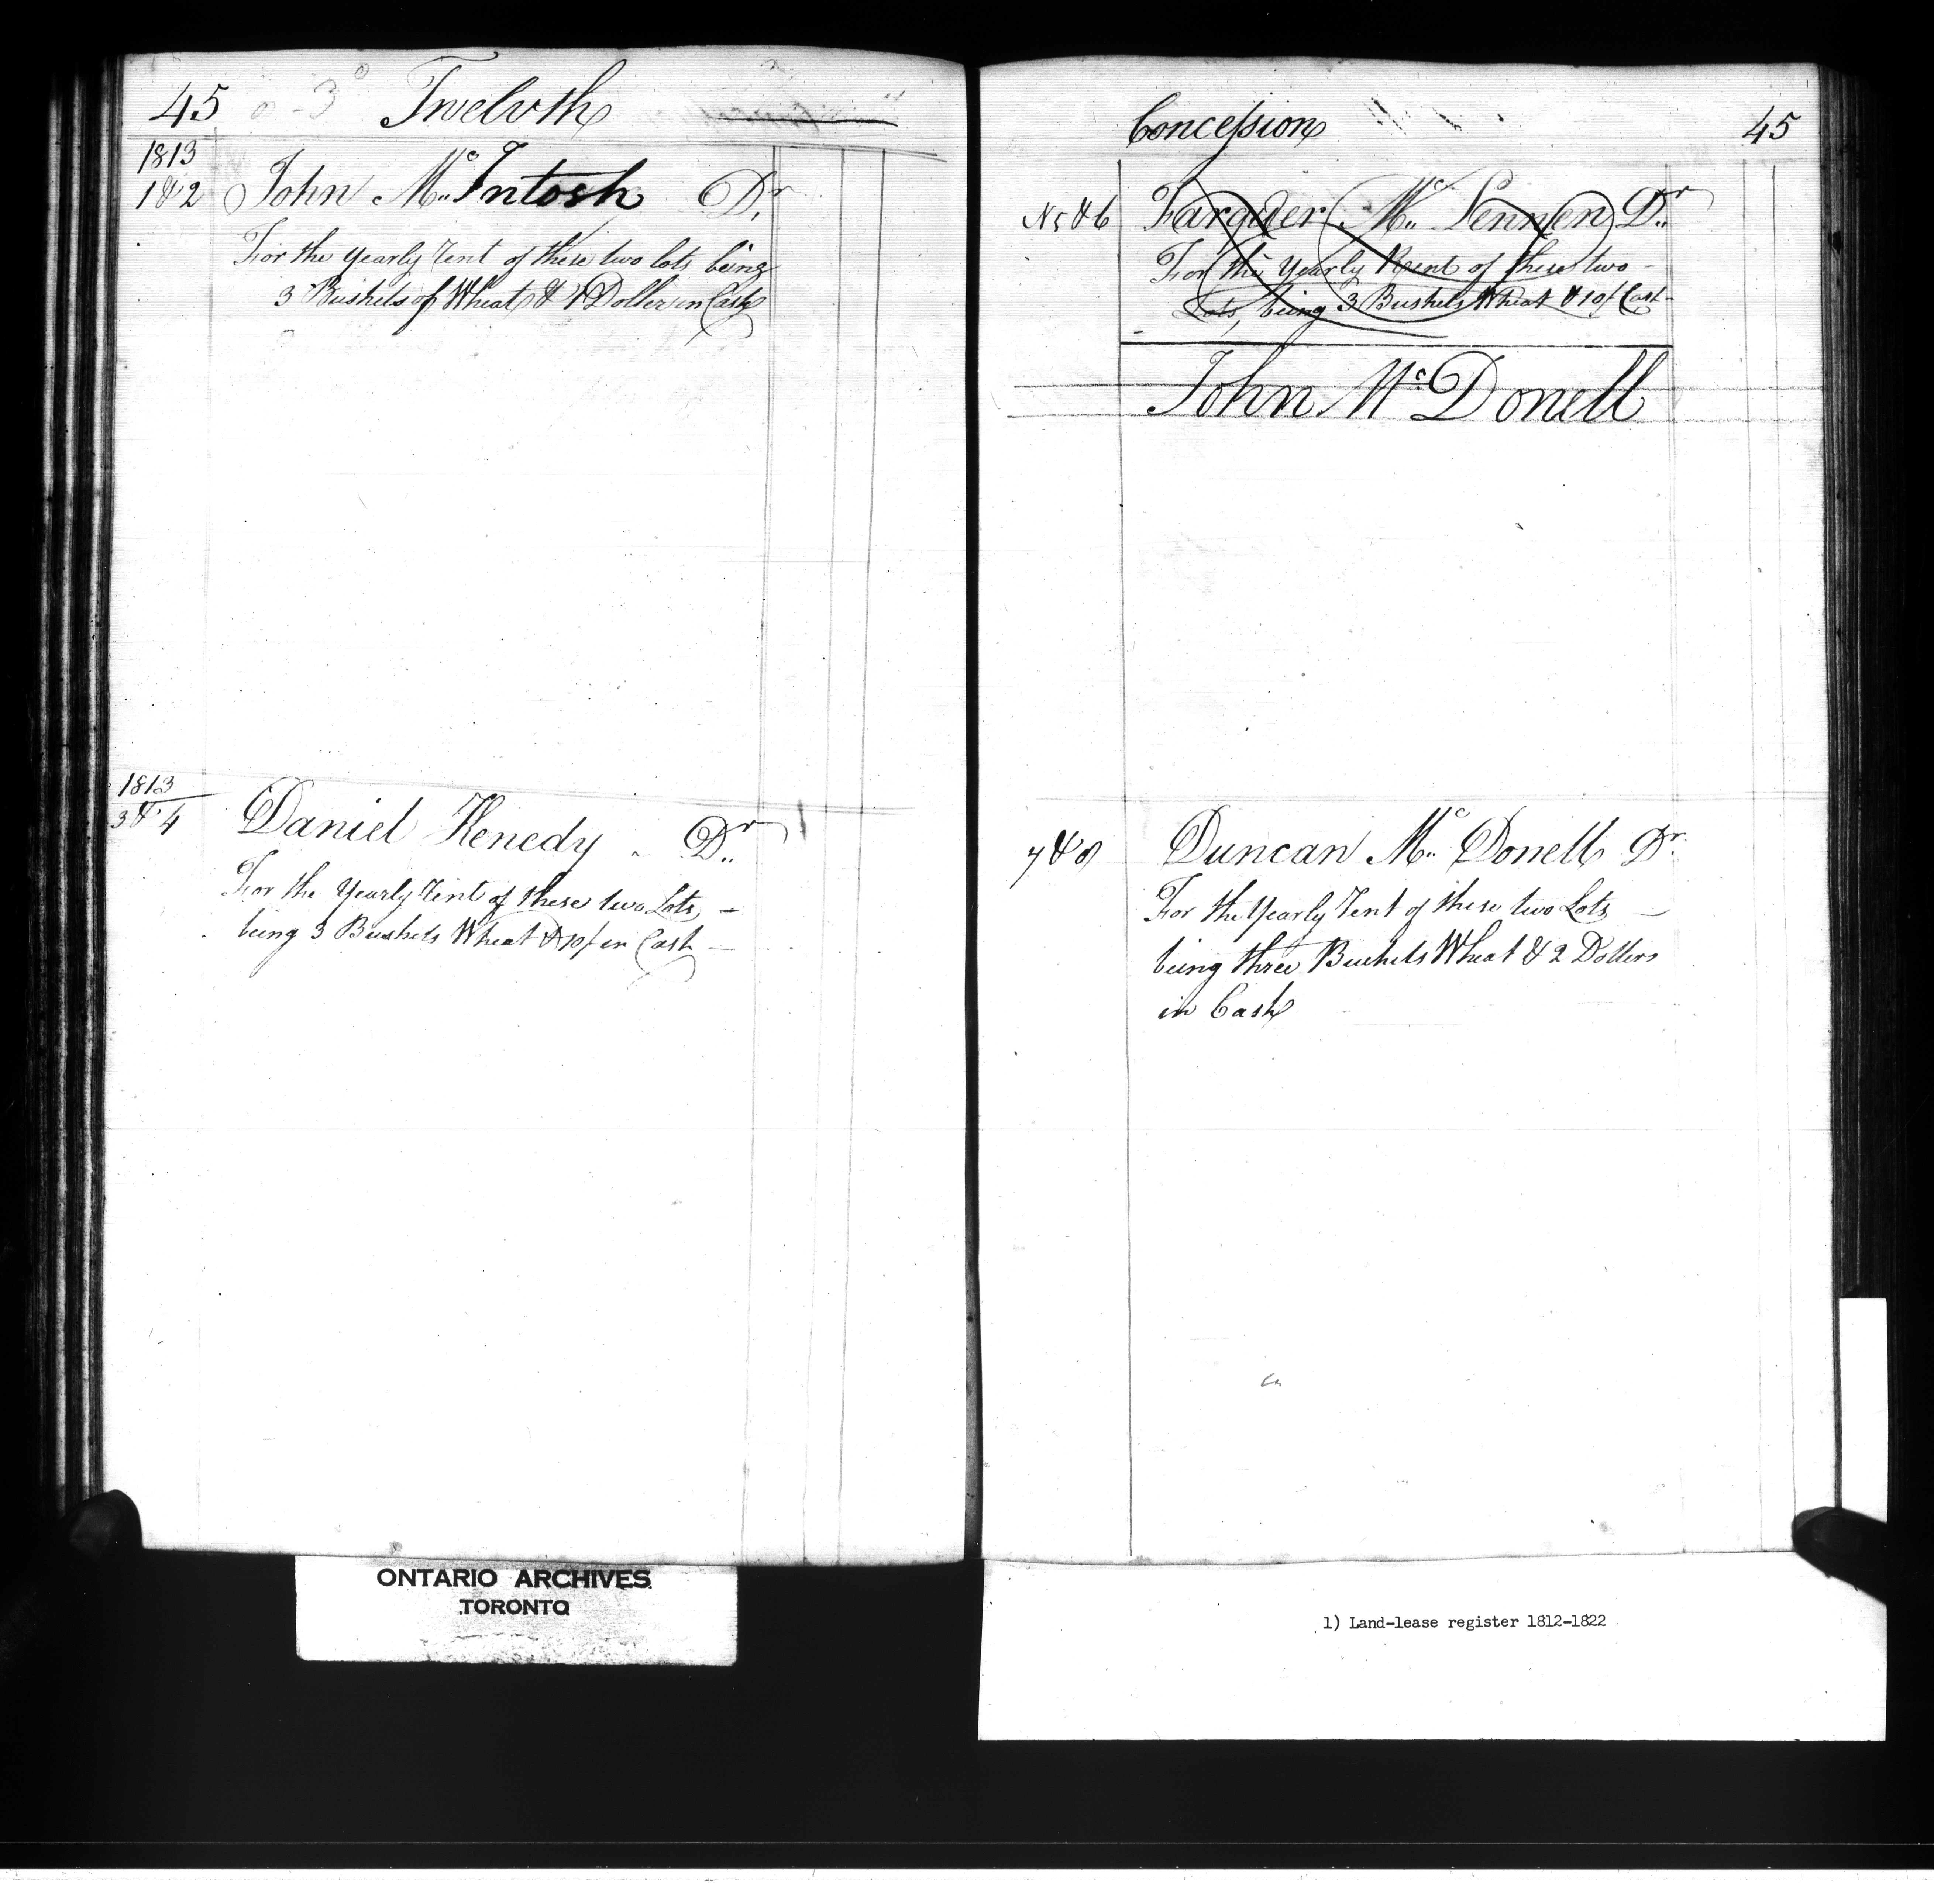 45 Twelvth
1813
1 & 2 John Mc Intosh Dr
For the Yearly Rent of these two lots being
3 Bushels of Wheat & Doller in Cash
1813
3 & 4 Daniel Kenedy Dr
For the Yearly Rent of these two Lots, -
being 3 Bushels Wheat & 10/ in Cash -
Concession 45
No 5 & 6 Farquer Mc Lennen Dr
For the Yearly Rent of these two -
Lots, being 3 Bushels Wheat & 10/ Cash -
John Mc Donell
7 & 8 Duncan Mc Donell Dr
For the Yearly Rent of these two Lots -
being three Bushels Wheat & 2 Dollers
in Cash
ONTARIO ARCHIVES
TORONTO
1) Land-lease register 1812-1822